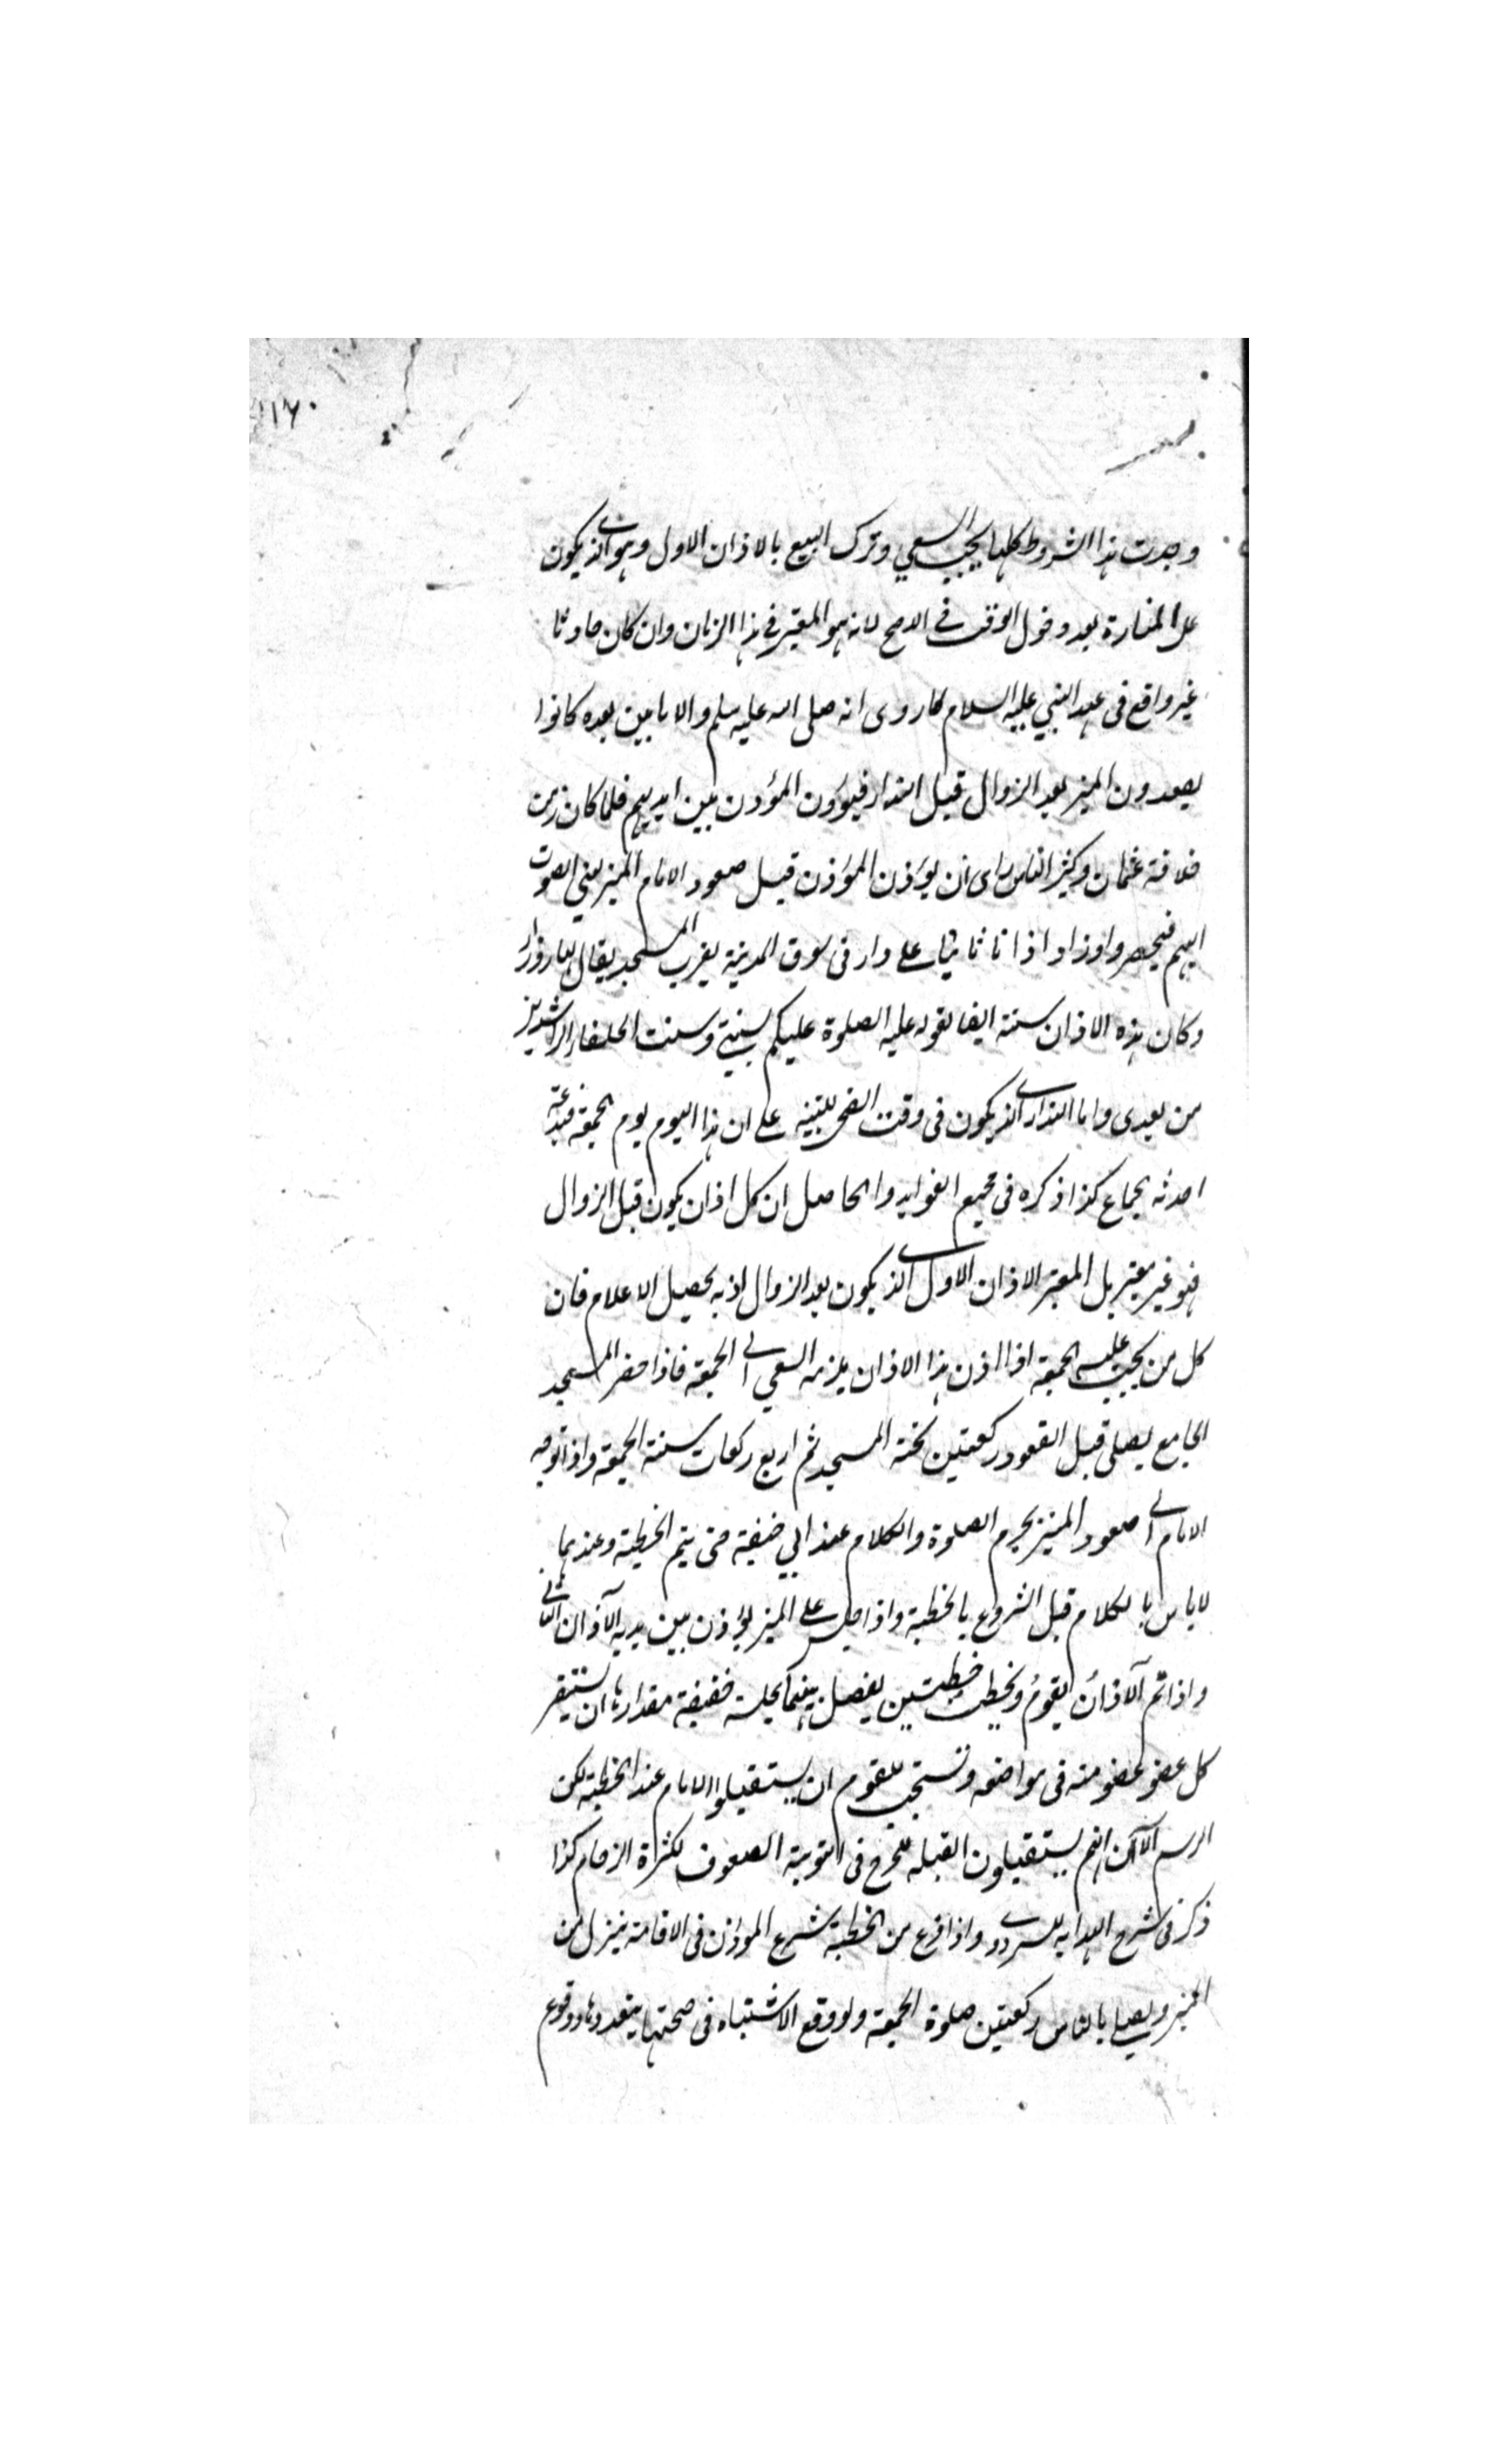 ١٦٠
وجدت هذا الشروط كلها يجب السعي وترك البيع بالاذان الاول وهو الذي يكون
على المنارة بعد دخول الوقت في الاصح لانه هو المعتبر في هذا الزمان وان كان حادثا
غير واقع في عهد النبي عليه السلام كما روى انه صلى الله عليه سلم والامامين بعده كانوا
يصعدون المنبر بعد الزوال قبل النداء فيؤذن المؤذن بين ايديهم فلما كان زمن
خلافة عثمان وكثير الناس راى ان يؤذن المؤذن قبل صعود الامام المنبر الصوت
اليهم فيحضروا وزاد اذانا ثانيا على دار في سوق المدينة بقرب المسجد يقال لها زوراء
وكان هذه الاذان سنة ايضا لقوله عليه الصلوة عليكم بسنتي وسنت الخلفاء الراشدين
من بعدي واما النداء الذي يكون في وقت الضحى للتنبيه على ان هذا اليوم يوم الجمعة فبدعة
احدثه كذا ذكره في مجمع الفوايد والحاصل ان كل اذان يكون قبل الزوال
فهو غير معتبر بل المعتبر الاذان الاول الذي يكون بعد الزوال اذ به يحصيل الاعلام فان
كل من يجب عليه الجمعة اذا اذن هذا الاذان يلزمه السعي الى الجمعة فاذا حضر المسجد
الجامع يصلى قبل القعود ركعتين تحية المسجد ثم اربع ركعات سنة الجمعة واذا توجه
الامام الى صعود المنبر يحرم الصلوة والكلام عند ابي حنيفة حتى يتم الخطبة وعندهما
لاباس بالكلام قبل الشروع بالخطبة واذا جلس على المنبر يؤذن بين يديه الآذان الثاني
واذا تم الآذان يقوم ويخطب خطبتين يفصل بينهما بجلسة خفيفة مقدارها ان يستقر
كل عضو عضو منه في مواضعه وتستحب للقوم ان يستقبلوا الامام عند الخطبة لكن
الرسم الآن انهم يستقبلون القبله للحرج في التوبية الصفوف لكثرة الزحام كذا
ذكر في شرح الهدايه للسروجي واذا فرغ من الخطبة شرع المؤذن في الاقامة ينزل من
المنبر ويصلي بالناس ركعتين صلوة الجمعة ولو وقع الاشتباه في صحتها بتعدد وقوع